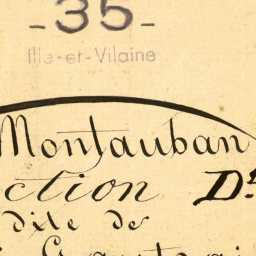 -35-
Ille-et-Vilaine
Montauban
ction D
dite de